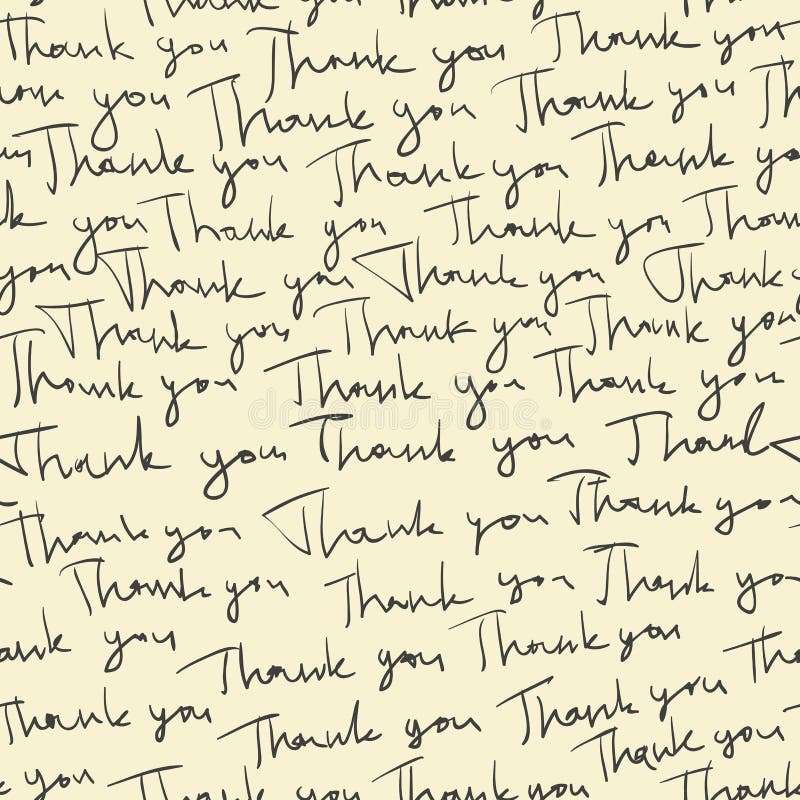 Thank you Thank you Thank you
Thank you Thank you Thank you Th
Thank you Thank you Thank you
k you Thank you Thank you Than
you Thank you Thank you Thank
Thank you Thank you Thank you
Thank you Thank you Thank you
Thank you Thank you Thank
Thank you Thank you Thank you
Thank you Thank you Thank yo
ank you Thank you Thank you Th
Thank you Thank you Thank you
k you Thank you Thank you Thank you Thank
dreamstime